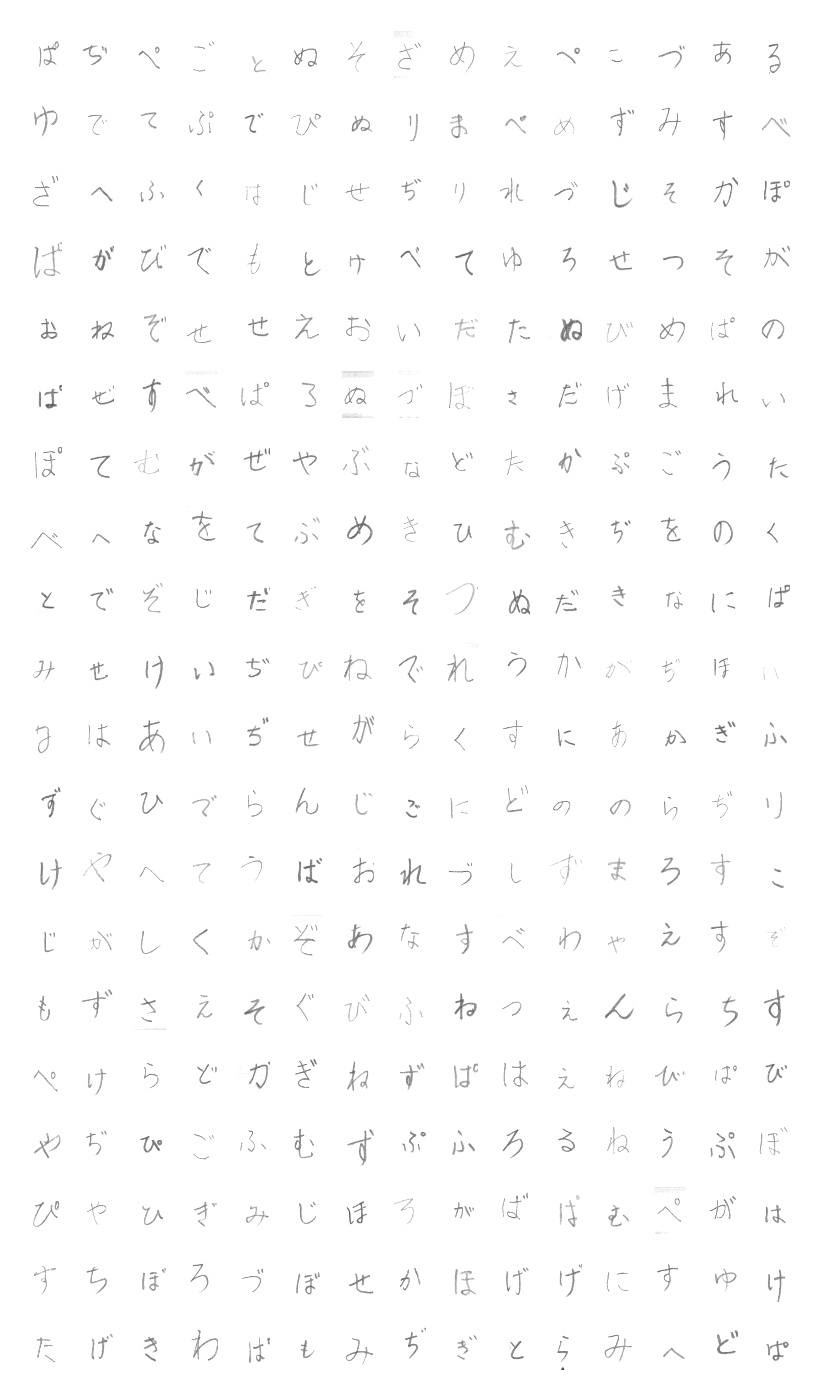 ぱぢぺごとぬそざめえぺこづある
ゆでてぷでぴぬりまぺめずみすべ
ざへふくはじせぢりれづじそかぽ
ばがびでもとけべてゆろせつそが
おねぞせせえおいだたぬびめぱの
ぱぜすべぱろぬづぼさだげまれい
ぽてむがぜやぶなどたかぷごうた
べへなをてぶめきひむきぢをのく
とでぞじだぎをそづぬだきなにぱ
みせけいぢぴねでれうかがぢほい
なはあいぢせがらくすにあかぎふ
ずぐひでらんじごにどののらぢり
けやへてうばおれづしずまろすこ
じがしくかぞあなすべわやえすぞ
もずさえそぐびふねつえんらちす
ぺけらどかぎねずぱはえねびぱび
やぢぴごふむずぷふろるねうぷぼ
ぴやひぎみじほろがばぱむぺがは
すちぼろづぼせかほげげにすゆけ
たげきわばもみぢぎとらみへどぱ